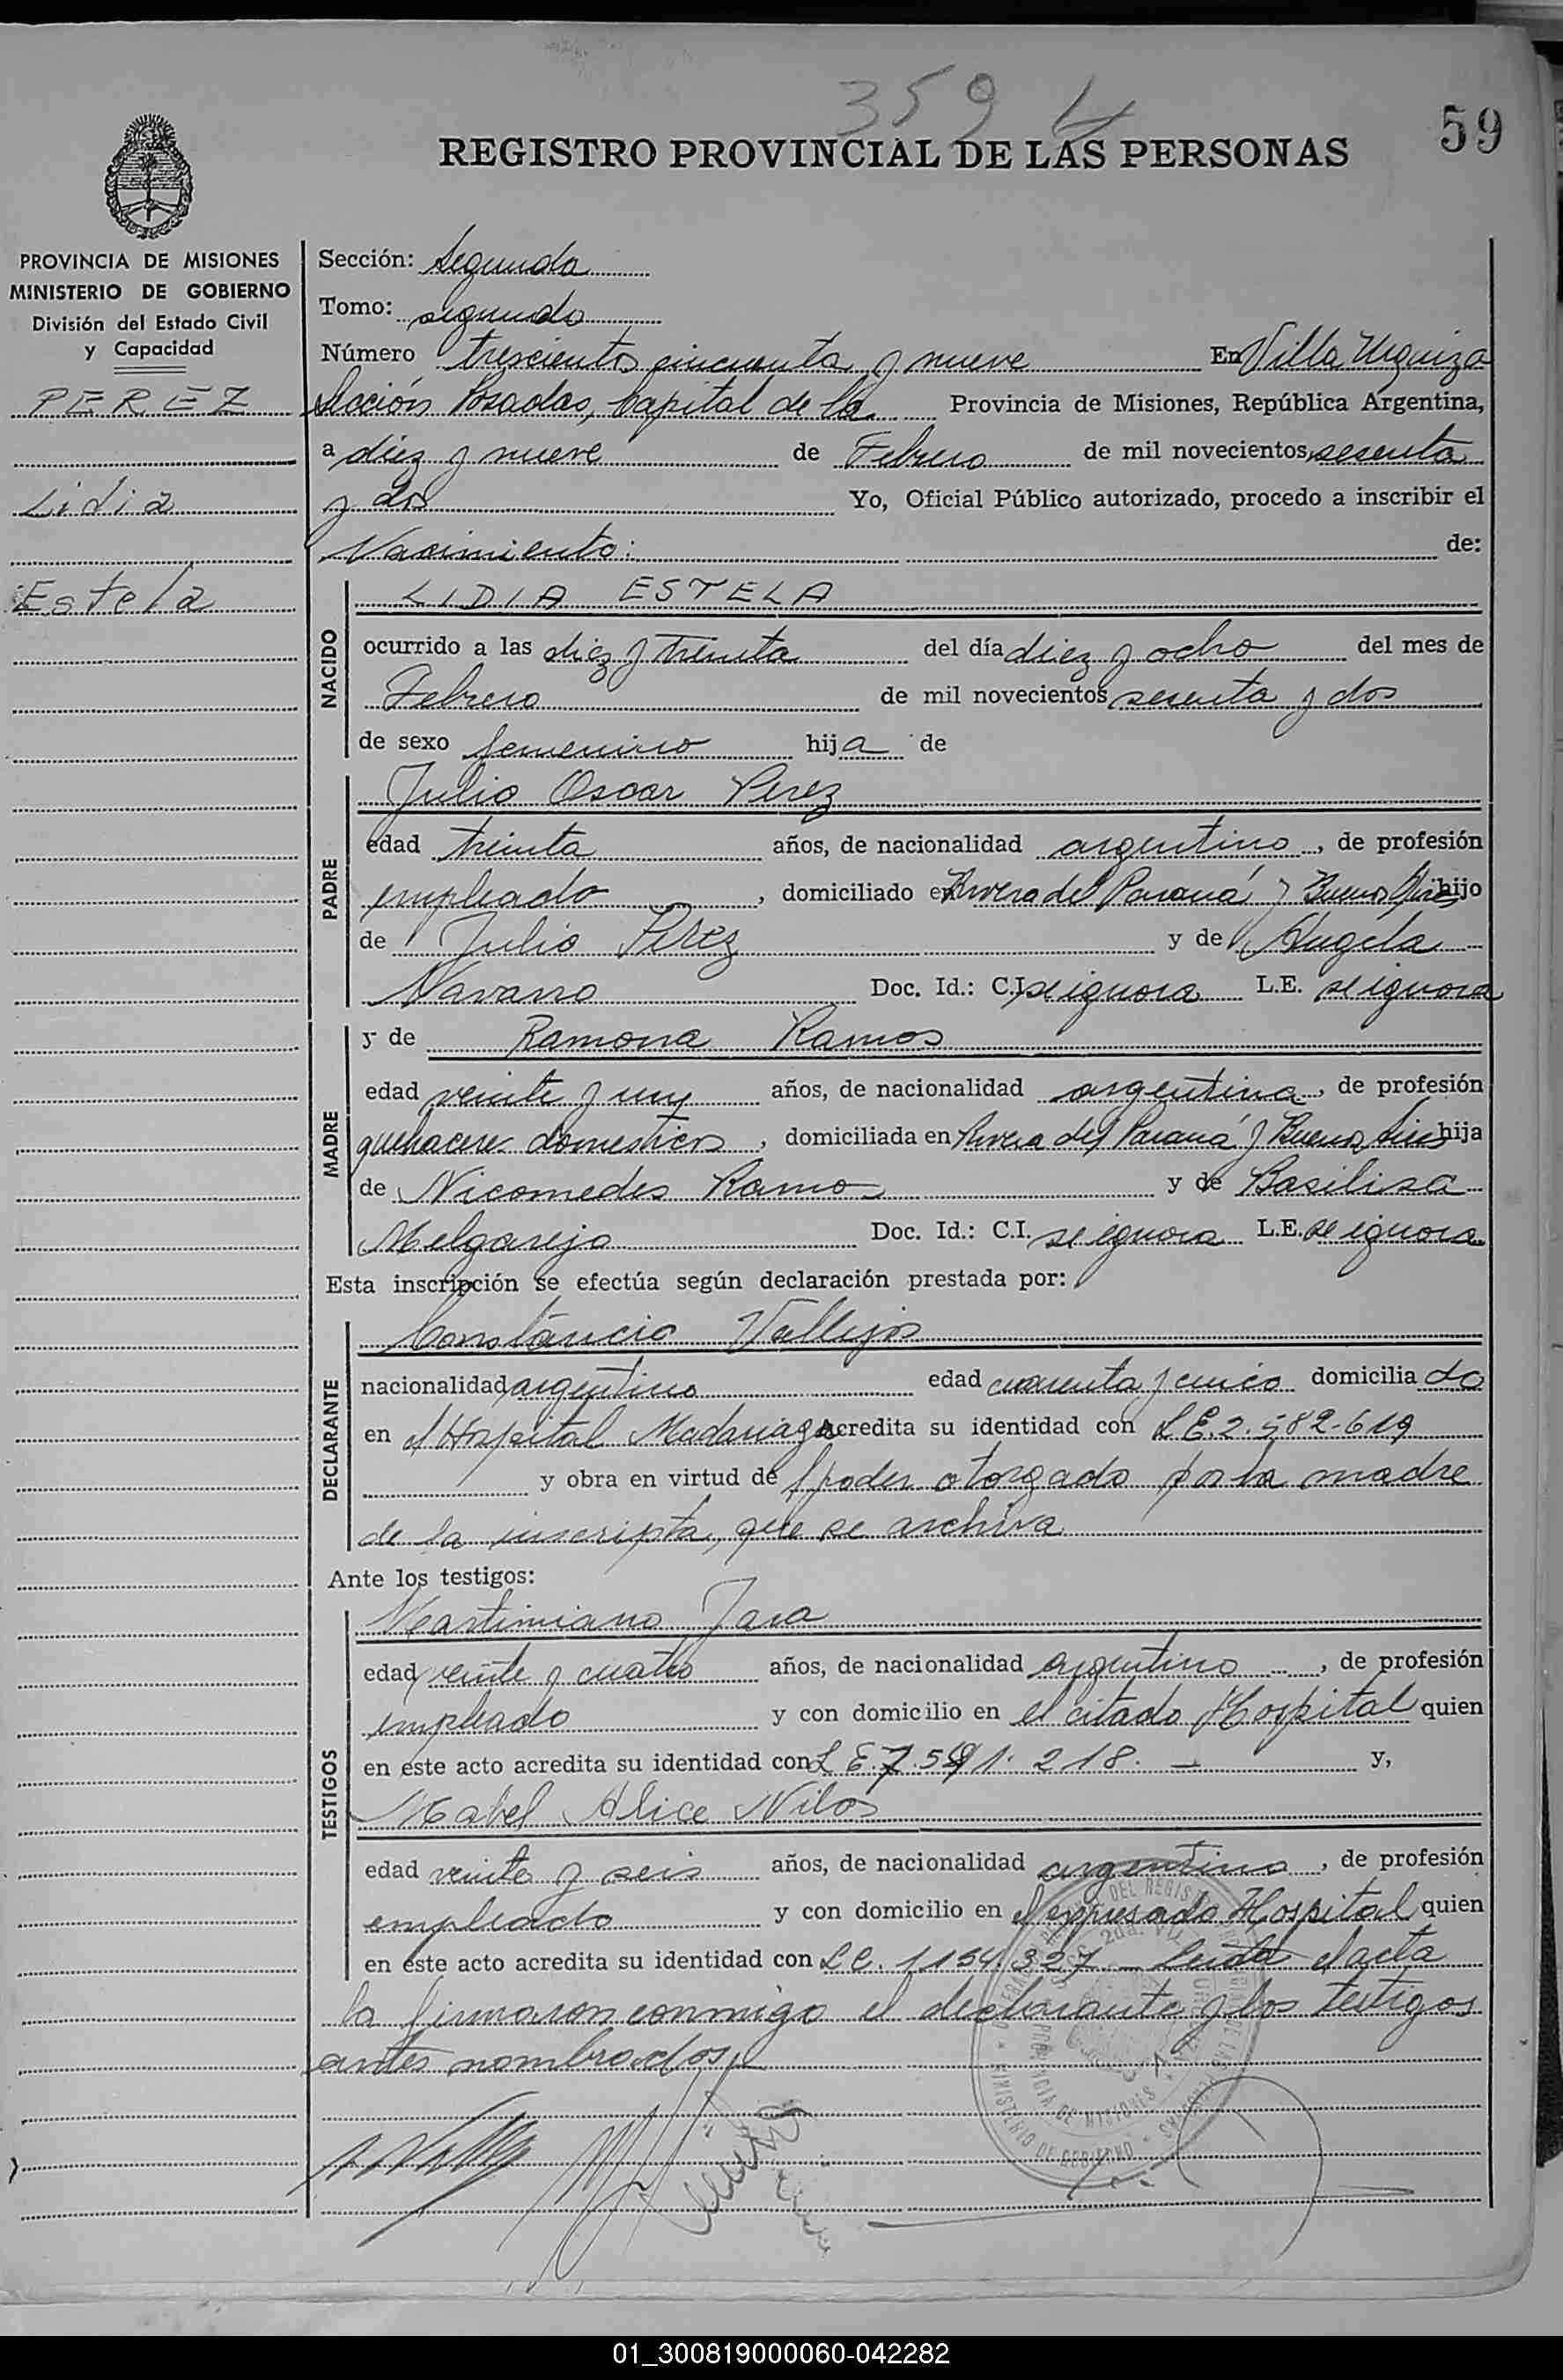 359
59
REGISTRO PROVINCIAL DE LAS PERSONAS
PROVINCIA DE MISIONES
MINISTERIO DE GOBIERNO
División del Estado Civil
y Capacidad
PEREZ
Lidia
Estela
Sección: Segunda
Tomo: segundo
Número trescientos cincuenta y nueve En Villa Urquiza
Sección Posadas, Capital de la Provincia de Misiones, República Argentina,
a diez y nueve de Febrero de mil novecientos sesenta
y dos Yo, Oficial Público autorizado, procedo a inscribir el
Nacimiento: de:
NACIDO
LIDIA ESTELA
ocurrido a las diez y treinta del día diez y ocho del mes de
Febrero de mil novecientos sesenta y dos
de sexo femenino hija de
PADRE
Julio Oscar Perez
edad treinta años, de nacionalidad argentino, de profesión
empleado, domiciliado en Rivera del Paraná y Buenos Aires hijo
de Julio Perez y de Angela
Navarro Doc. Id.: C.I. se ignora L.E. se ignora
MADRE
y de Ramona Ramos
edad veinte y un años, de nacionalidad argentina, de profesión
quehaceres domesticos, domiciliada en Rivera del Paraná y Buenos Aires hija
de Nicomedes Ramos y de Basilisa
Melgarejo Doc. Id.: C.I. se ignora L.E. se ignora
Esta inscripción se efectúa según declaración prestada por:
DECLARANTE
Constancio Vallejos
nacionalidad argentino edad cuarenta y cinco domiciliado
en el Hospital Madariaga acredita su identidad con L.E. 2.582-619
y obra en virtud del poder otorgado por la madre
de la inscripta, que se archiva
Ante los testigos:
TESTIGOS
Martimiano Jara
edad veinte y cuatro años, de nacionalidad argentino, de profesión
empleado y con domicilio en el citado Hospital quien
en este acto acredita su identidad con L E. 7.591.218.— y,
Mabel Alice Nilos
edad veinte y seis años, de nacionalidad argentina, de profesión
empleado y con domicilio en el expresado Hospital quien
en este acto acredita su identidad con L C. 1154.327 — Leida el acta
la firmaron conmigo el declarante y los testigos
antes nombrados
PROVINCIA DE MISIONES
MINISTERIO DE GOBIERNO
01_300819000060-042282